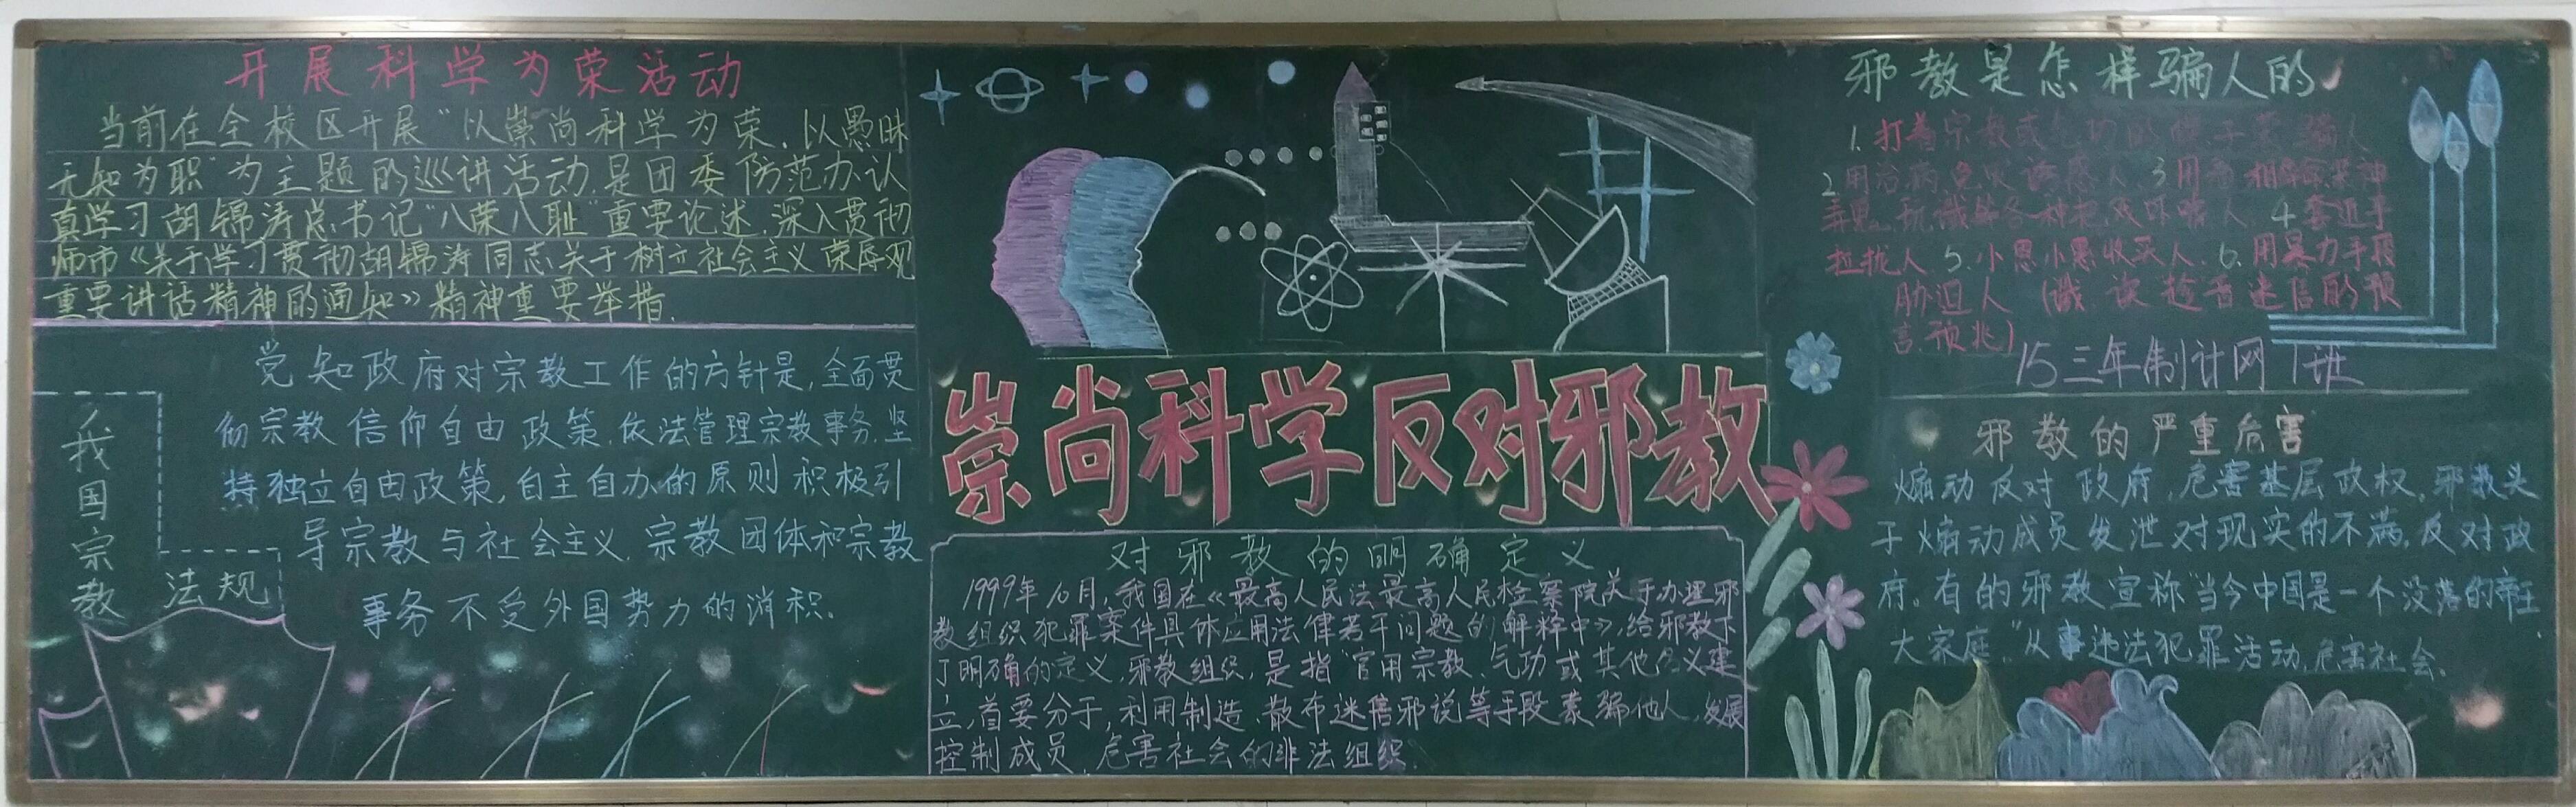 开展科学为荣活动
当前在全校区开展"以崇尚科学为荣,以愚昧
无知为职"为主题的巡讲活动,是团委防范办认
真学习胡锦涛总书记"八荣八耻"重要论述,深入贯彻
师市《关于学习贯彻胡锦涛同志关于树立社会主义荣辱观
重要讲话精神的通知》精神重要举措.
我国宗教
法规
党知政府对宗教工作的方针是,全面贯
彻宗教信仰自由政策,依法管理宗教事务,坚
持独立自由政策,自主自办的原则积极引
导宗教与社会主义,宗教团体和宗教
事务不受外国势力的消积.
崇尚科学反对邪教
对邪教的明确定义
1999年10月,我国在《最高人民法最高人民检察院关于办理邪
教组织犯罪案件具体应用法律若干问题的解释中》,给邪教下
了明确的定义,邪教组织,是指官用宗教、气功或其他名义建
立,首要分子,利用制造、散布迷信邪说等手段蒙骗他人,发展
控制成员,危害社会的非法组织.
邪教是怎样骗人的
1.打着宗教或气功的幌子蒙骗人
2用治病免灾诱惑人.3用看相
人.4套近乎
拉拢人.5.小恩小惠收买人.6.用暴力手段
胁迫人
迷信的预
言.预兆)
15三年制计网1班
邪教的严重危害
煽动反对政府,危害基层政权,邪教头
子煽动成员发泄对现实的不满,反对政
府。有的邪教宣称"当今中国是一个没落的帝王
大家庭"从事违法犯罪活动,危害社会.